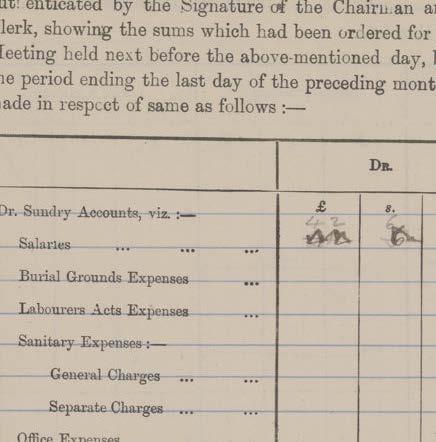 enticated by the Signature of the Chairman
lerk, showing the sums which had been ordered for
Meeting held next before the above-mentioned day,
he period ending the last day of the preceding mont
ade in respect of same as follows :—
DR.
Dr. Sundry Accounts, viz. :—
£ s.
42 6
Salaries ... ... ...
Burial Grounds Expenses ...
Labourers Acts Expenses ...
Sanitary Expenses :—
General Charges ... ...
Separate Charges ... ...
Office Expenses